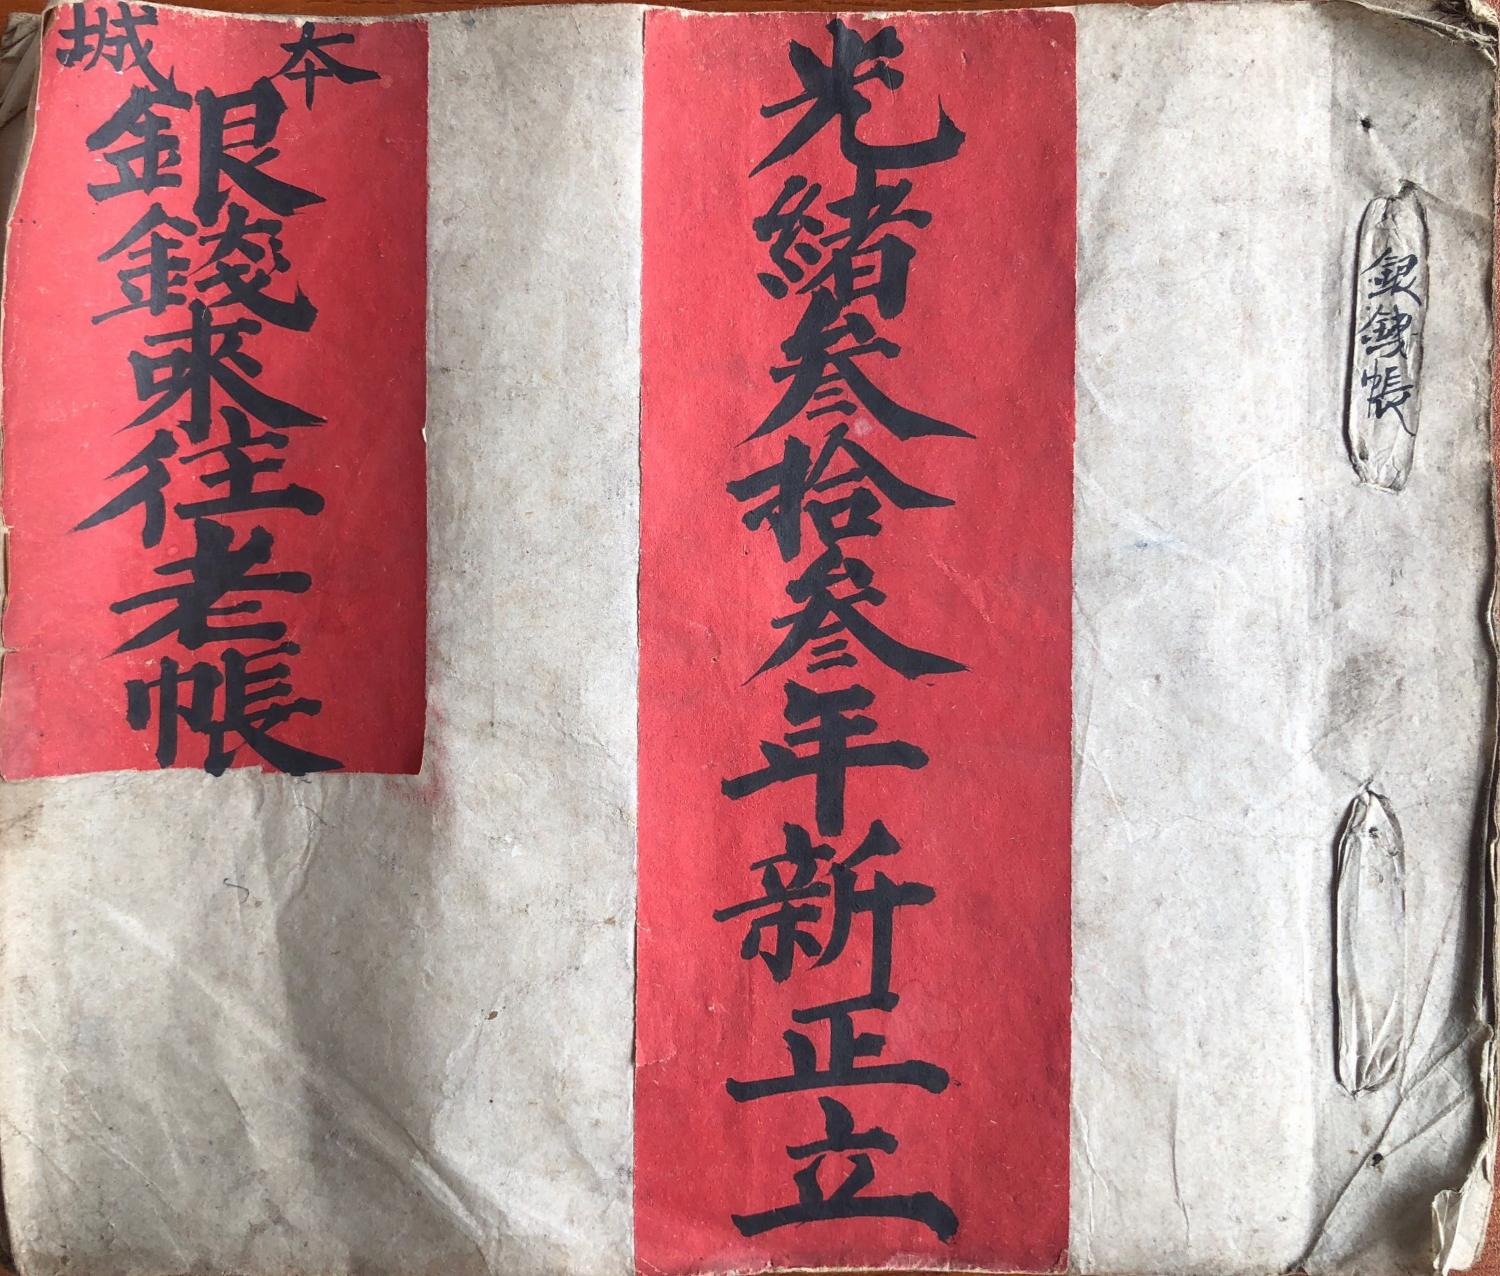 銀錢帳
光緒叁拾叁年新正立
本城
銀錢來往老帳